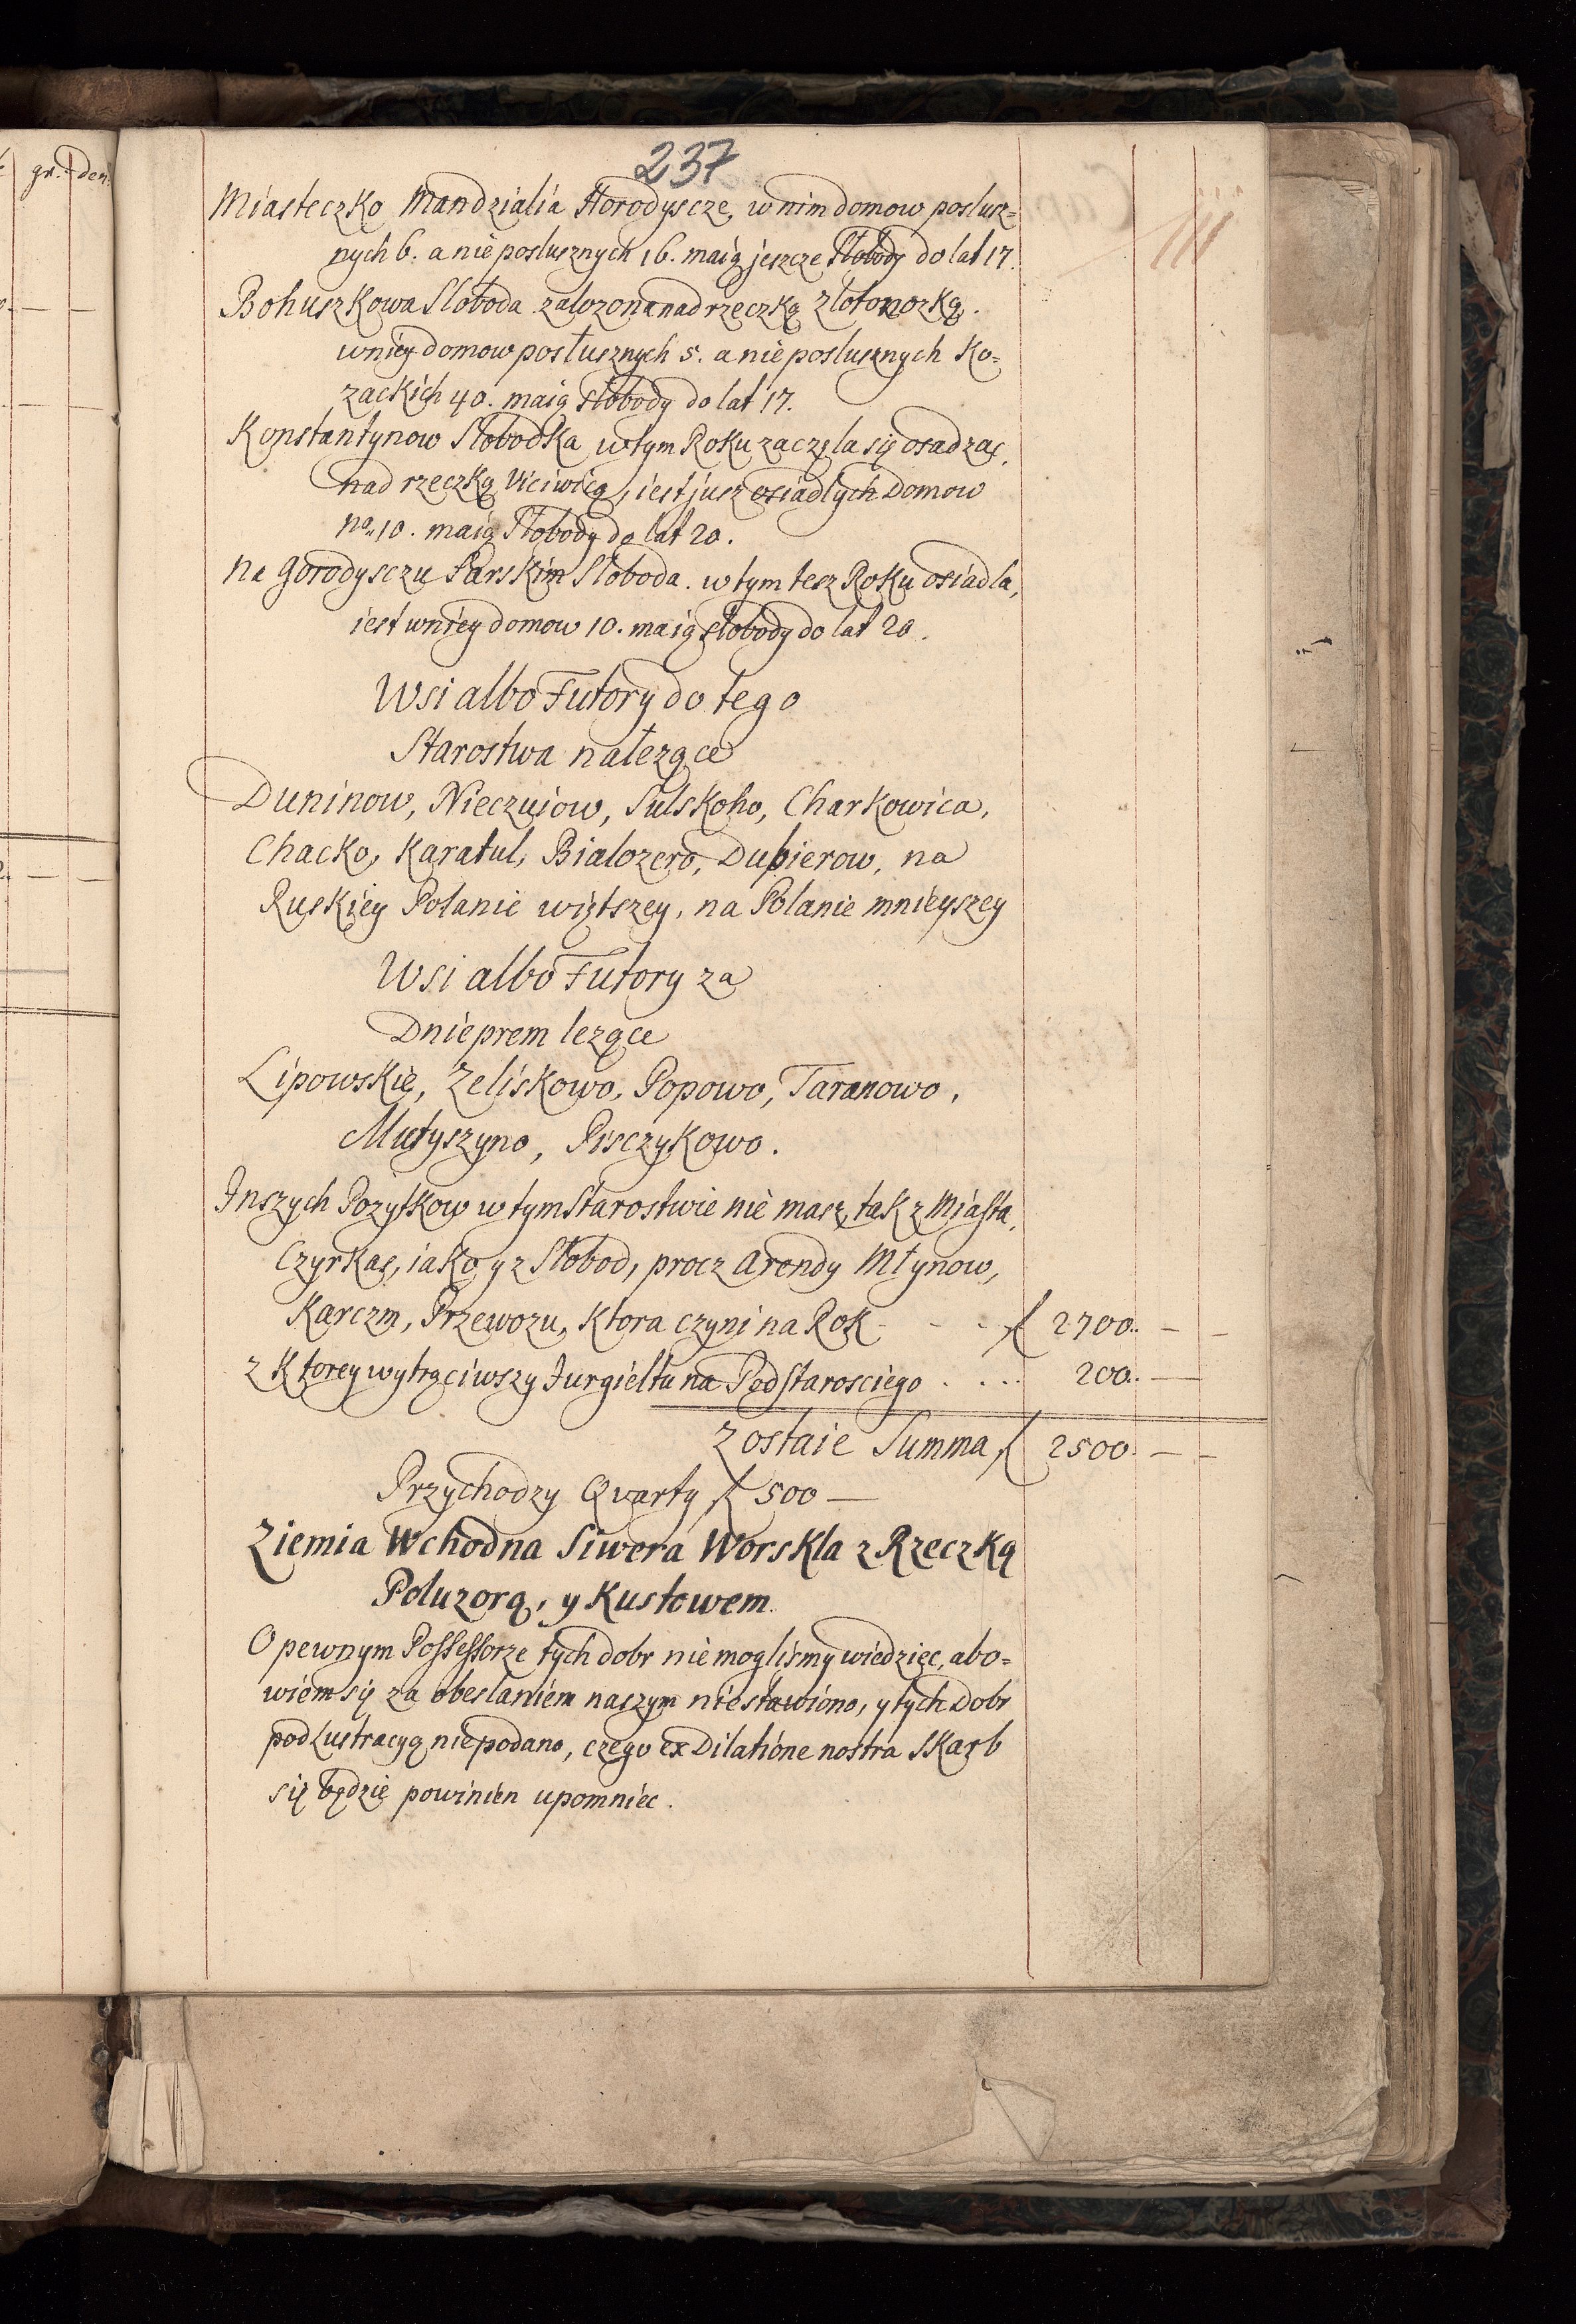 gr. den.
237
Miasteczko Mandzialia Horodyscze, w nim domow poslusz=
nych 6. a nie poslusznych 16. maią jeszcze Słobody do lat 17.
Bohuszkowa Sloboda zalozona nad rzeczką Zlotonozką.
w niey domow posłusznych 5. a nie poslusznych Ko=
zackich 40. maią słobody do lat 17.
Konstantynow Słobodka w tym Roku zaczęla się osadzac,
nad rzeczką Viciwicą, iest jusz osiadlych Domow
no. 10. maią Słobody do lat 20.
Na Gorodysczu Parskim Sloboda. w tym tesz Roku osiadla,
iest w niey domow 10. maią słobody do lat 20.
Wsi albo Futory do tego
Starostwa nalezące
Duninow, Nieczuiow, Sulskoho, Charkowica,
Chacko, Karatul, Bialozero, Dubierow, na
Ruskiey Polanie więtszey, na Polanie mnieyszey
Wsi albo Futory za
Dnieprem lezące
Lipowskie, Zeliskowo, Popowo, Taranowo,
Mutyszyno, Pisczykowo.
Inszych Pozytkow w tym Starostwie nie masz, tak z Miasta,
Czyrkas, iako y z Słobod, procz Arendy Młynow,
Karczm, Przewozu, Ktora czyni na Rok - - - f 2700. — —
z Ktorey wytrąciwszy Jurgieltu na Podstarosciego . . . . 200. —
Zostaie Summa f 2500. — —
Przychodzy Qvarty f 500 —
Ziemia Wchodna Siwera Worskla z Rzeczką
Poluzorą, y Kustowem.
O pewnym Possessorze tych dobr nie moglismy wiedziec, abo=
wiem się za obeslaniem naszym nie stawiono, y tych Dobr
pod Lustracyą nie podano, czego ex Dilatione nostra Skarb
się będzie powinien upomniec.